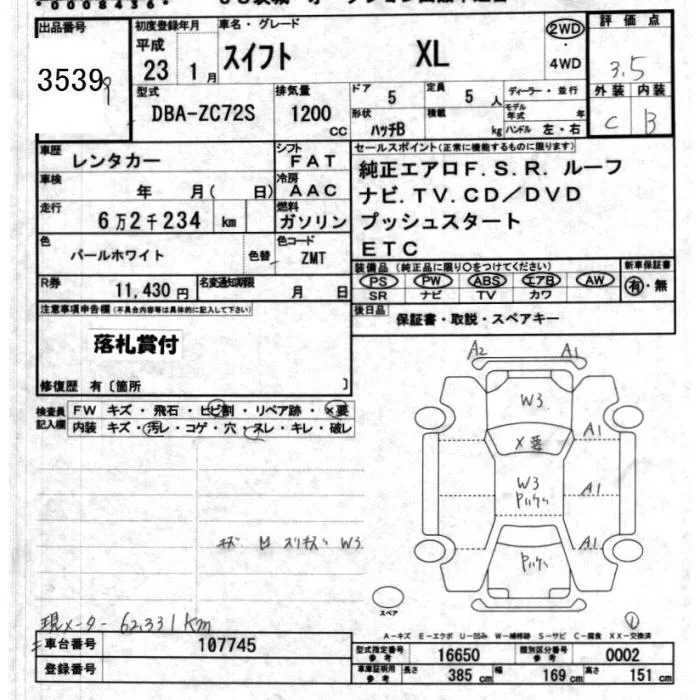 *0008436*
出品番号 初度登録年月 車名・グレード 2WD 評価点
35399 平成 23 1月 スイフト XL ・4WD 3.5
型式 排気量 ドア 5 定員 5人 ディーラー・並行 外装 内装
DBA-ZC72S 1200cc 形状 ハッチB 積載 kg モデル年式 年 ハンドル 左・右 C B
車歴 レンタカー シフト FAT セールスポイント(正常に機能するものに限ります)
車検 年 月( 日) 冷房 AAC 純正エアロF.S.R.ルーフ
走行 6万2千234 km 燃料 ガソリン ナビ.TV.CD/DVD
色 パールホワイト 色替 色コード ZMT プッシュスタート
ETC
R券 11,430円 名変通知期限 月 日 装備品(純正品に限り○をつけてください) 新車保証書
PS PW ABS エアB AW 有・無
SR ナビ TV カワ
注意事項申告欄(不具合内容等は具体的に記入して下さい) 後日品 保証書・取説・スペアキー
落札賞付
修復歴 有〔箇所 〕
検査員記入欄 FW キズ・飛石・ヒビ割・リペア跡・×要
内装 キズ・汚レ・コゲ・穴・スレ・キレ・破レ
A2 A1
W3
X要
A1
W3
A1
A1
キズ W3
スペア
現メーター 62,331km
A-キズ E-エクボ U-凹み W-補修跡 S-サビ C-腐食 XX-交換済
車台番号 107745 型式指定番号 参考 16650 類別区分番号 参考 0002
登録番号 車庫証明用 参考 長さ 385cm 幅 169cm 高さ 151cm